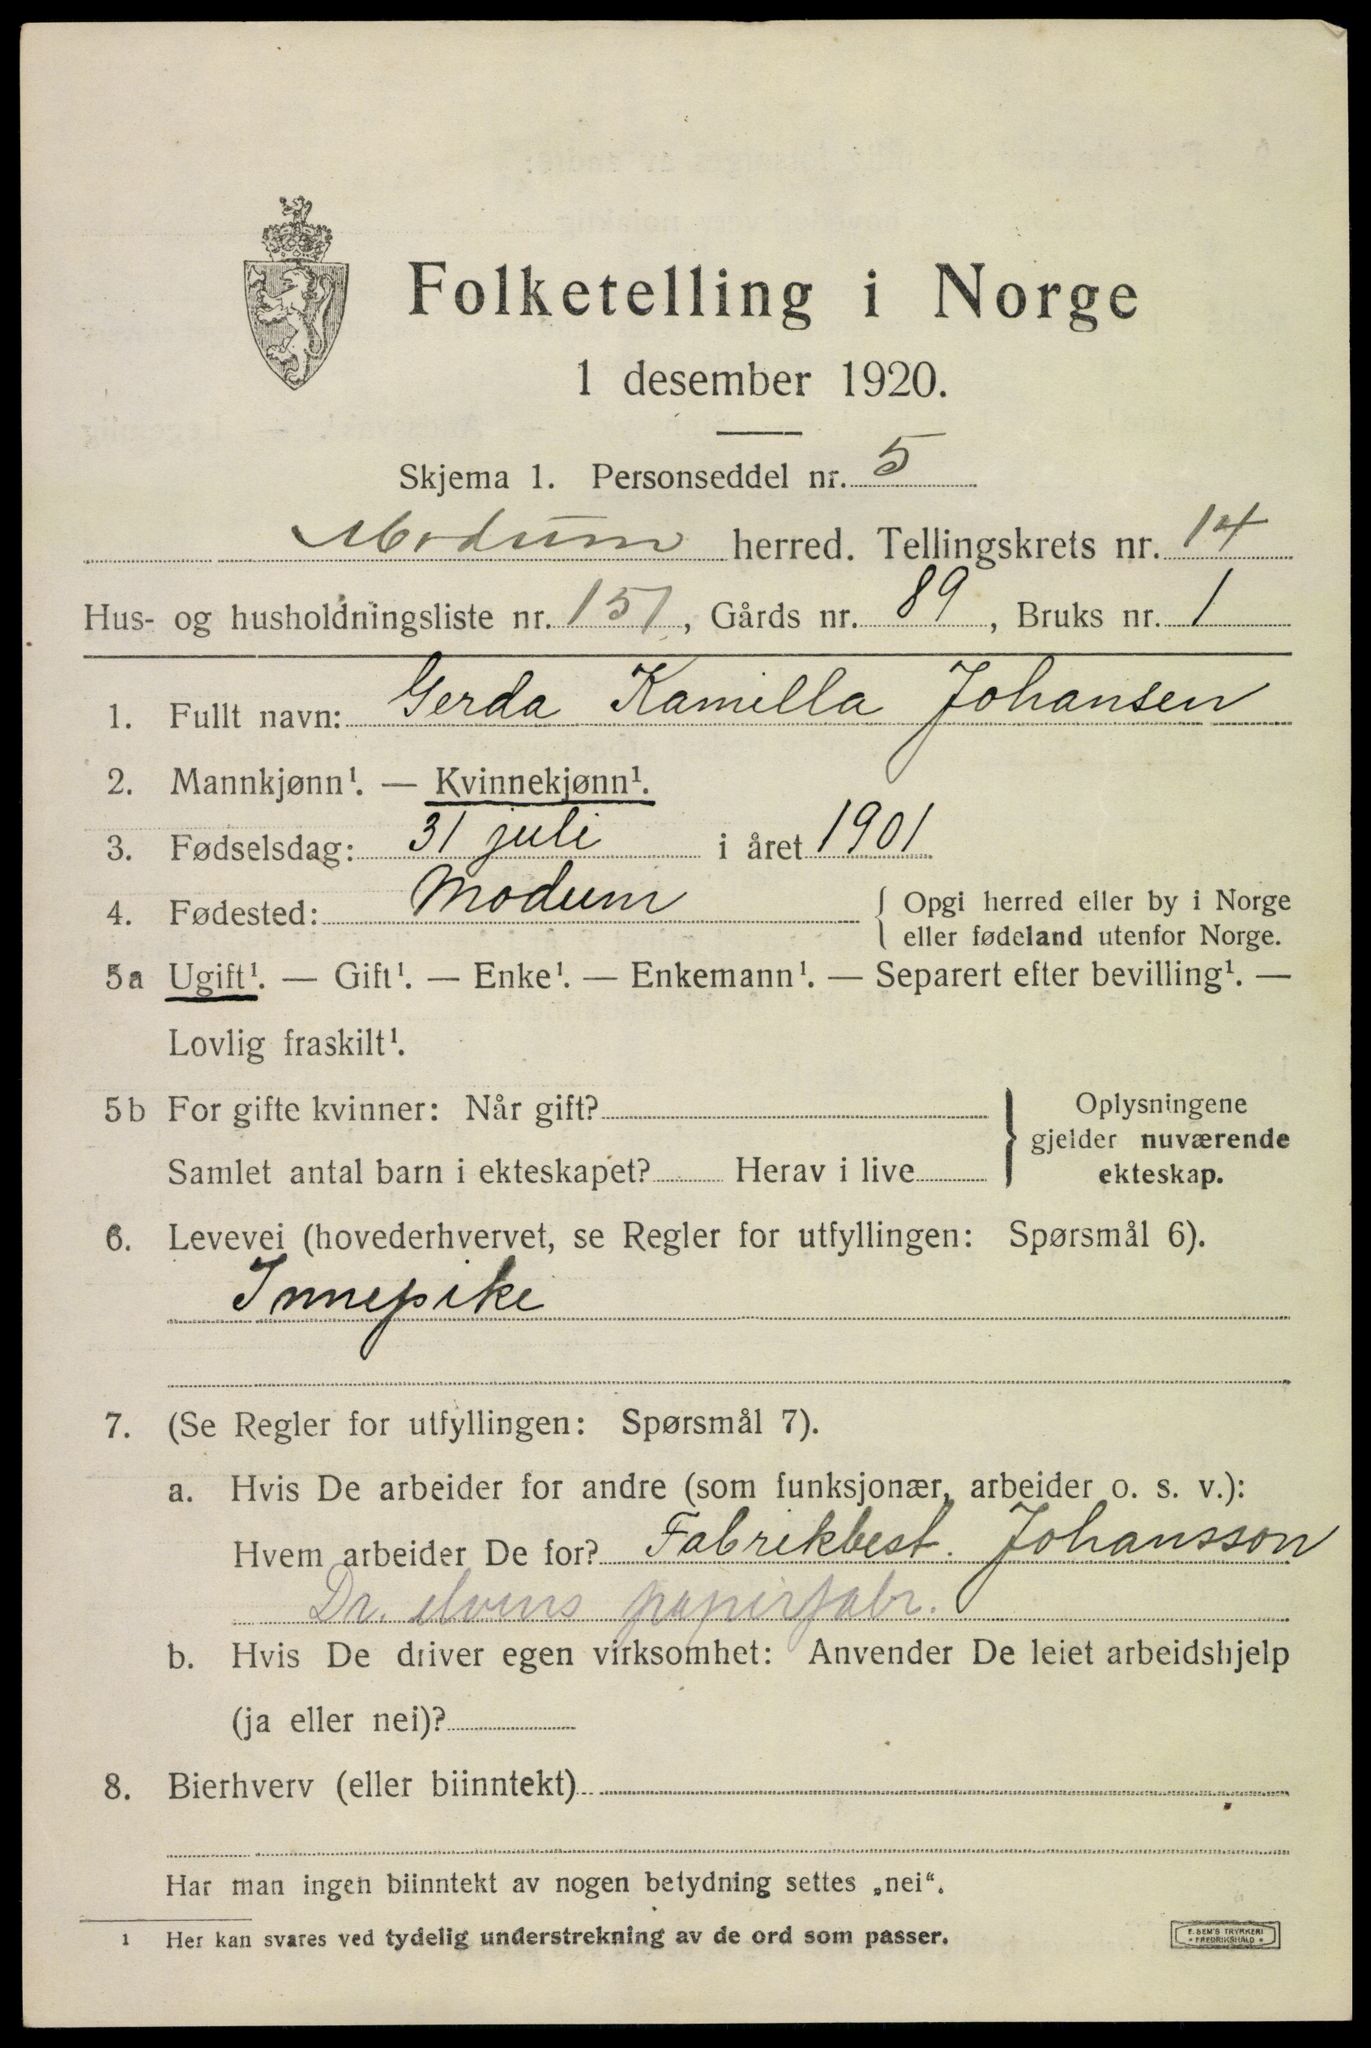 Folketelling i Norge
1 desember 1920.
Skjema 1. Personseddel nr. 5
Modum herred. Tellingskrets nr. 14
Hus- og husholdningsliste nr. 151, Gårds nr. 89, Bruks nr. 1
1. Fullt navn: Gerda Kamilla Johansen
2. Mannkjønn¹. — Kvinnekjønn¹.
3. Fødselsdag: 31 juli i året 1901
4. Fødested: Modum { Opgi herred eller by i Norge
eller fødeland utenfor Norge.
5a Ugift¹. — Gift¹. — Enke¹. — Enkemann¹. — Separert efter bevilling¹. —
Lovlig fraskilt¹.
5b For gifte kvinner: Når gift?
Samlet antal barn i ekteskapet? Herav i live
} Oplysningene
gjelder nuværende
ekteskap.
6. Levevei (hovederhvervet, se Regler for utfyllingen: Spørsmål 6).
Innepike
7. (Se Regler for utfyllingen: Spørsmål 7).
a. Hvis De arbeider for andre (som funksjonær, arbeider o. s. v.):
Hvem arbeider De for? Fabrikbest. Johansson
Dr. elvens papirfabr.
b. Hvis De driver egen virksomhet: Anvender De leiet arbeidshjelp
(ja eller nei)?
8. Bierhverv (eller biinntekt)
Har man ingen biinntekt av nogen betydning settes „nei“.
1 Her kan svares ved tydelig understrekning av de ord som passer.
F. BEM'S TRYKKERI
FREDRIKSHALD